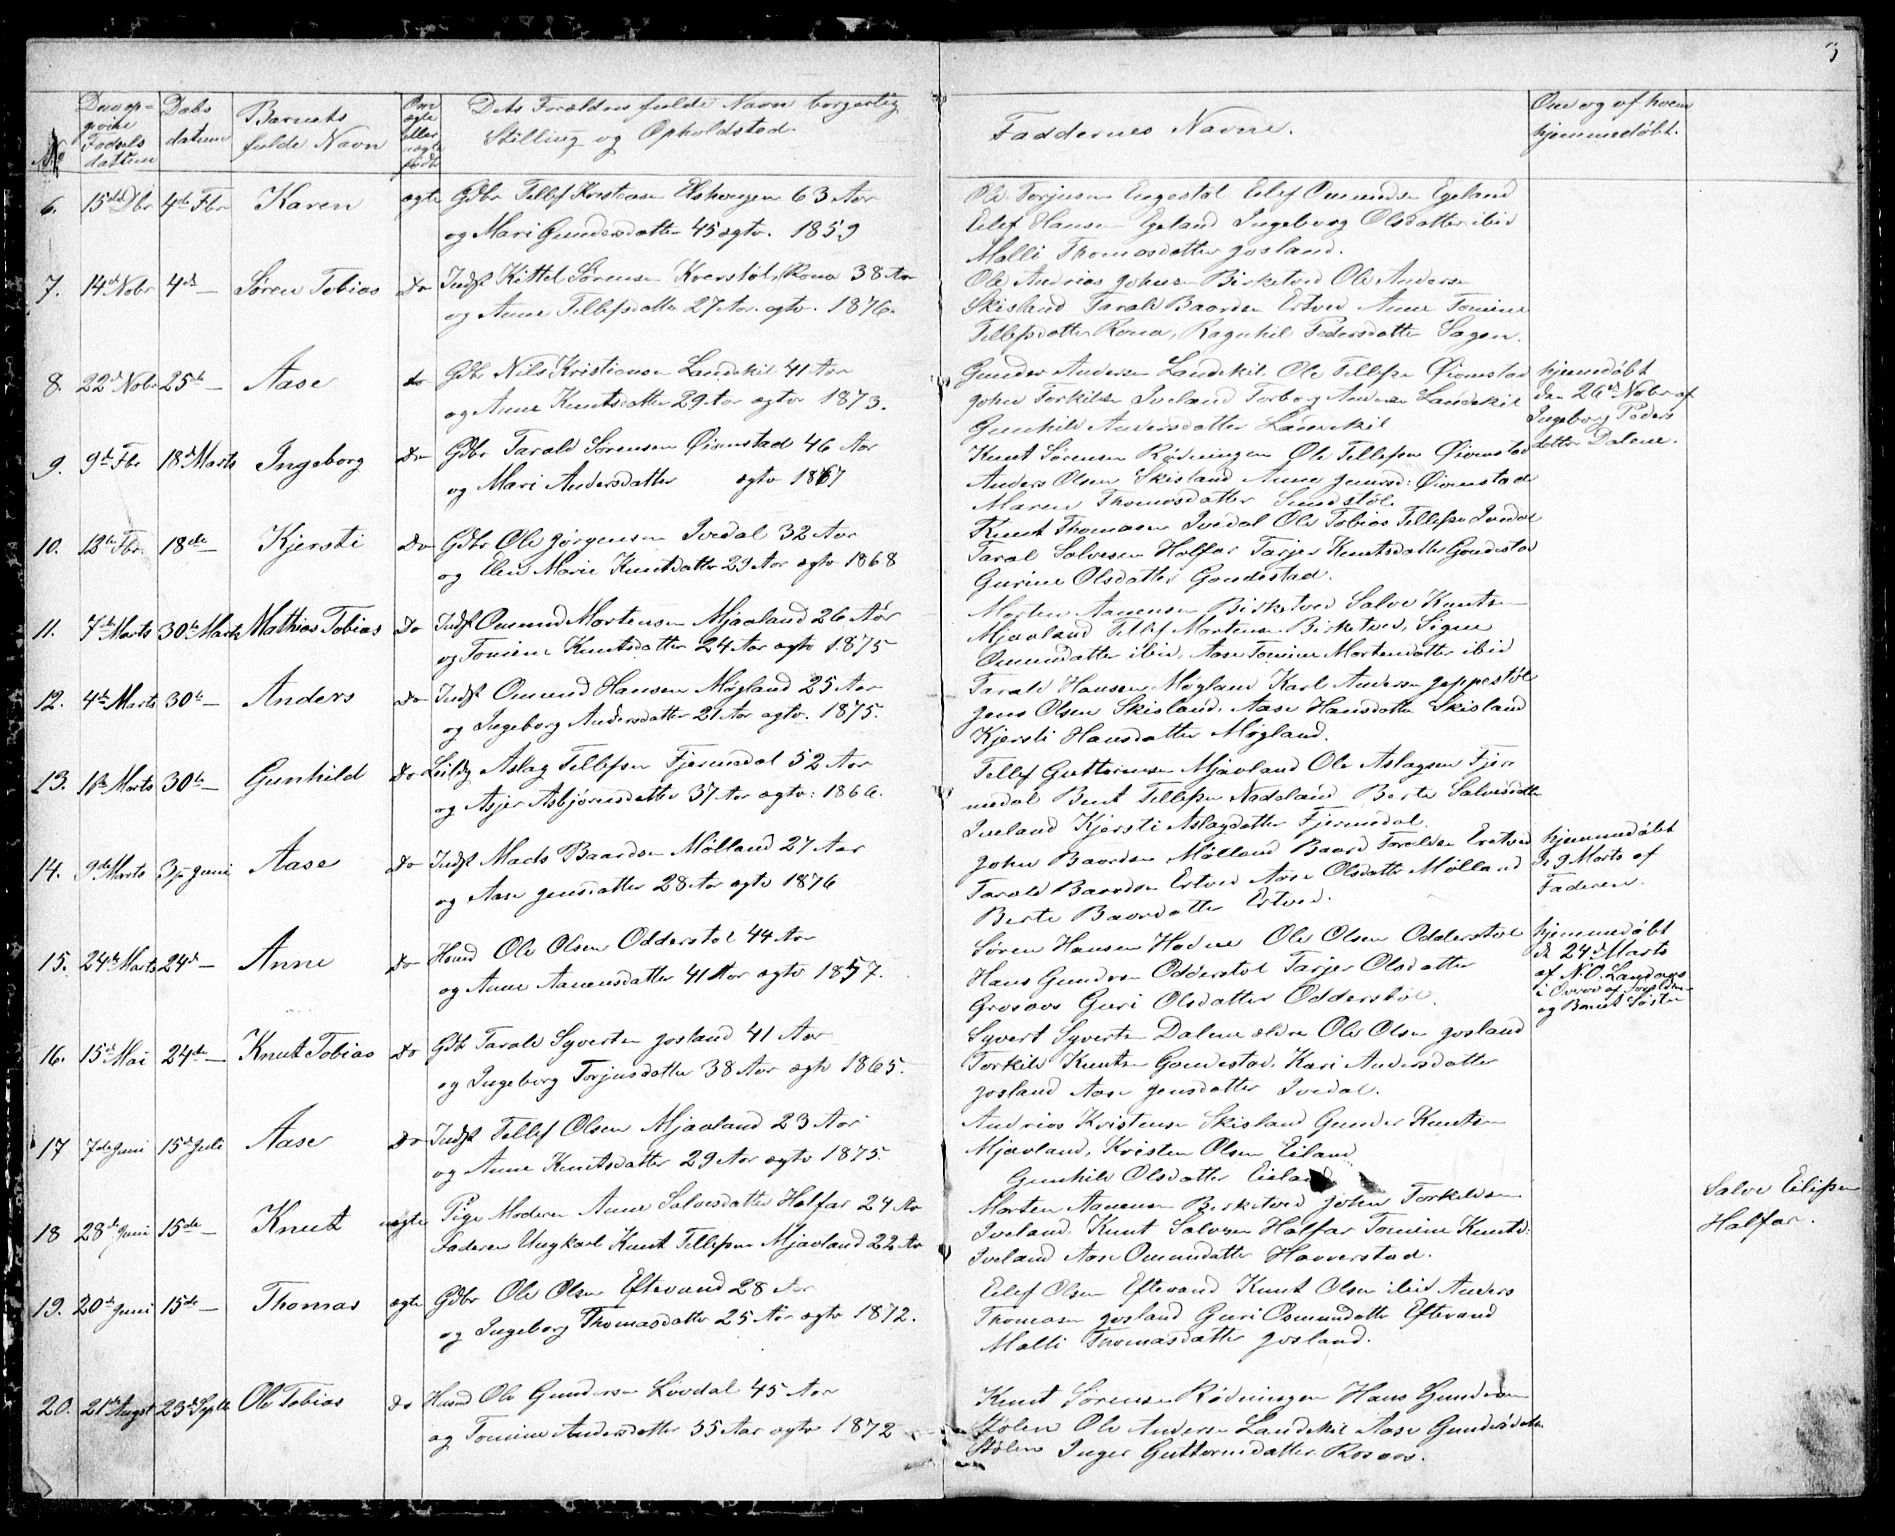 3
No
Den op-
givne
Fødsels
datum
Daabs
datum
Barnets
fulde Navn
Om
ægte
eller
uægte
født
Dets Forældres fulde Navn borgerlig
Stilling og Opholdsted.
Faddernes Navne.
Om og af hvem
hjemmedøbt.
6. 15de Dbr 4de Fbr Karen ægte Gdbr Tellef Kristensen 63 Aar
og Mari Gundersdatter 45 ægtv. 1859
Ole Torjusen Engestøl Eilef Omundsen Egeland
Eilef Hansen Egeland Ingeborg Olsdatter ibid
Malli Thomasdatter Josland.
7. 14de Nobr 4de — Søren Tobias Do Indst Kittel Sørensen Rona 38 Aar
og Anne Tellefsdatter 27 Aar. ægtv. 1876.
Ole Andrias Johnsen Birketved Ole Andersen
Skisland Tarald Baardsen Ertved Anne Tomine
Tellefsdatter Rona, Ragnhil Pedersdatter Sagen.
8. 22de Nobr 25de — Aase do Gdbr Nils Kristiansen Landskil 41 Aar
og Anne Knutsdatter 29 Aar ægtv 1873.
Gunder Andersen Landskil Ole Tellefsen Øiomstad
John Torkildsen Iveland Torborg Landskil
Gunhild Andersdatter Landskil
hjemedøbt
den 26de Nobr af
Ingeborg Peders
datter Dalene.
9. 9de Fbr 18de Marts Ingeborg Do Gdbr Tarald Sørensen Øiomstad 46 Aar
og Mari Andersdatter ægtv 1867
Knut Sørensen Rødningen Ole Tellefsen Øiomstad
Anders Olsen Skisland Anne Jensd: Øiomstad
Maren Thomasdatter
10. 12te Fbr. 18de — Kjersti Do Gdbr Ole Jørgensen Ivedal 32 Aar
og Elen Marie Knutsdatter 29 Aar ægtv 1868
Knut Thomasen Ivedal Ole Tobias Tellefsen Ivedal
Taral Salvesen Halfar Tarjer Knutsdatter Goudestad
Gurine Olsdatter Goudestad.
11. 7de Marts 30te Marts Mathias Tobias Do Indst Omund Mortensen Mjaaland 26 Aar
og Tomine Knutsdatter 24 Aar ægtv 1875
Morten Aanensen Birketved Salve Knutsen
Mjaaland Tellef Mortensen Birketved, Signe
Omundatter ibid, Aase Tomine Mortensdatter ibid
12. 4de Marts 30te — Anders Do Indst Omund Hansen Møgland 25 Aar
og Ingeborg Andersdatter 21 Aar ægtv. 1875.
Tarald Hansen Møgland Karl Andersen Jeppestøl
Jens Olsen Skisland. Aase Hansdatter Skisland
Kjersti Hansdatter Møgland.
13. Marts 30te — Gunhild Do Aslag Tellefsen Fjermedal 52 Aar
og Asjer Asbjørnsdatter 37 Aar ægtv: 1866.
Tellef Guttormsen Mjaaland Ole Aslagsen Fjer
medal Bent Tellefsen Nadeland Berte Salvesdatter
Iveland Kjersti Aslagdatter Fjermedal.
14. 9de Marts 3je Juni Aase Do Indst Mads Baardsen Mølland 27 Aar
og Aase Jensdatter 28 Aar ægtv 1876
John Baardsen Mølland Baard Taraldsen Ertved
Tarald Baardsen Ertved Aase Olsdatter Mølland
Berte Baardatter Ertved.
hjemmedøbt
d: 9 Marts af
Faderen.
15. 24de Marts 24de — Anne Do Husmd Ole Olsen Odderstøl 44 Aar
og Anne Aanensdatter 41 Aar ægtv 1857.
Søren Hansen Hodne Ole Olsen Odderstøl
Hans Gundersen Odderstøl Tarjer Olsdatter
Grosaas Guri Olsdatter Odderstøl.
hjemmedøbt
d: 24de Marts
af N. O. Landaas
i Overv af Forældrene
og Barnets Søster
16. 15de Mai 24de — Knut Tobias Do Gdb Tarald Syvertsen Josland 41 Aar
og Ingeborg Torjusdatter 38 Aar ægtv 1865.
Syvert Syvertsen Dalene ældre Ole Olsen Josland
Torkild Knutsen Goudestad. Kari Andersdatter
Josland Aase Jensdatter Ivedal.
17 7de Juni 15de Juli Aase Do Indst Tellef Olsen Mjaaland 23 Aar
og Anne Knutsdatter 29 Aar ægtv 1875.
Andrias Kristensen Skisland Gunder Knutsen
Mjaaland, Kristen Olsen Eiland
Gunhild Olsdatter Eiland
18 28de Juni 15de — Knut uægte Pige Moderen Anne Salvesdatter Halfar 24 Aar
Faderen Ungkarl Knut Tellefsen Mjaaland 22 Aar
Morten Aanensen Birketved John Torkildsen
Iveland. Knut Salvesen Halfar Tomine Knutsd:
Iveland Aase Omundatter Haaverstad.
Salve Eilifsen
Halfar.
19. 20de Juni 15de — Thomas ægte Gdbr Ole Olsen Eftevand 28 Aar
og Ingeborg Thomasdatter 25 Aar ægtv 1872.
Eilef Olsen Eftevand Knut Olsen ibid Anders
Thomasen Josland Guri Osmundatter Eftevand
Malli Thomasdatter Josland.
20. 21de Augst 23de Septb Ole Tobias do Husmd Ole Gundersen Lovdal 45 Aar
og Tomine Andersdatter 35 Aar ægtv 1872
Knut Sørensen Rødningen Hans Gundersen
Stølen Ole Andersen Landskil Aase Gundersdatter
Stølen Inger Guttormsdatter Rosaas.